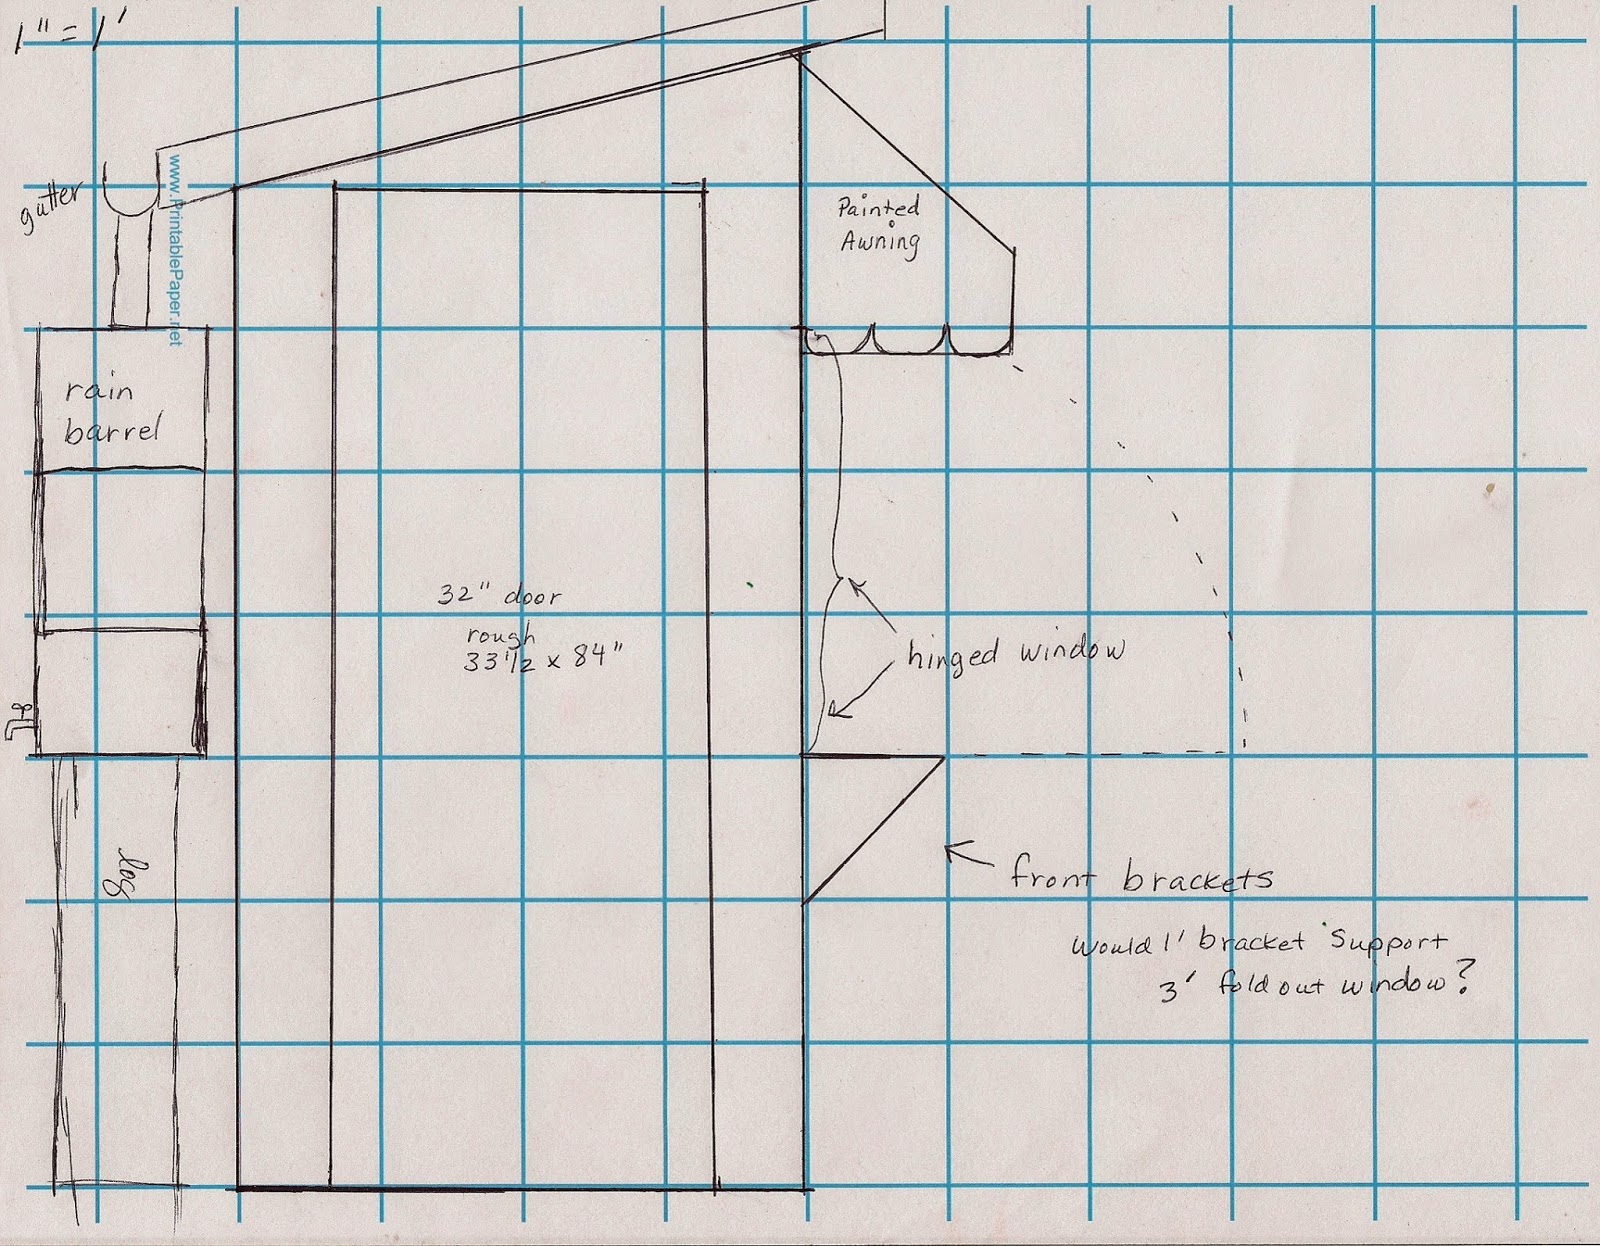 1" = 1'
gutter
www.PrintablePaper.net
Painted
Awning
rain
barrel
32" door
rough
33 1/2 x 84"
hinged window
log
front brackets
Would 1' bracket support
3' fold out window?